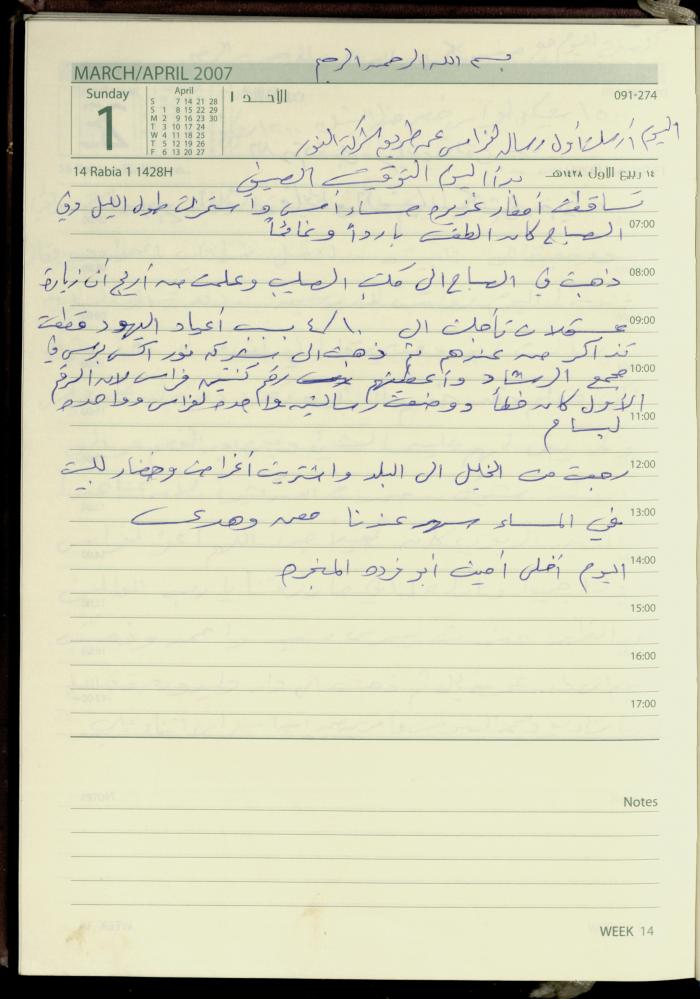 بسم الله الرحمن الرحيم
MARCH/APRIL 2007
Sunday
1
April
S 7 14 21 28
S 1 8 15 22 29
M 2 9 16 23 30
T 3 10 17 24
W 4 11 18 25
T 5 12 19 26
F 6 13 20 27
الأحد ١
091-274
اليوم أرسلت أول رسالة لفراس عن طريق شركة النور
14 Rabia 1 1428H
١٤ ربيع الاول ١٤٢٨هـ
بدأ اليوم التوقيت الصيفي
تساقطت أمطار غزيره مساء أمس واستمرت طول الليل وفي
07:00
الصباح كان الطقس بارداً وغائماً
08:00
ذهبت في الصباح الى مكتب الصليب وعلمت من أريج أن زيارة
09:00
عسقلان تأجلت الى ١٠/٤ بسبب أعياد اليهود قطعت
تذاكر من عندهم ثم ذهبت الى شركة نور اكس برس في
10:00
مجمع الرشاد وأعطيتهم رقم كنتين فراس لان الرقم
الأول كان خطأ ووضعت رسالتين واحدة لفراس وواحده
11:00
لبسام
12:00
رجعت من الخليل الى البلد واشتريت أغراض وخضار للبيت
13:00
في المساء سهر عندنا معن وهدى
14:00
اليوم أخلى أمين أبو فرده المنجره
15:00
16:00
17:00
Notes
WEEK 14